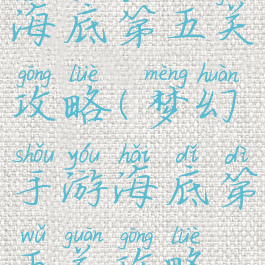 海底第五关
gōng lüè mèng huàn
攻略(梦幻
shǒu yóu hǎi dǐ dì
手游海底第
wǔ guān gōng lüè
五关攻略